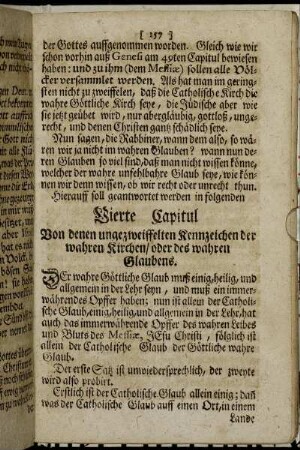 [ 157 ]
der Gottes auffgenommen worden. Gleich wie wir
schon vorhin auß Genesi am 49sten Capitul bewiesen
haben: und zu ihm (dem Messiæ) sollen alle Völ-
cker versammlet werden. Als hat man im gering-
sten nicht zu zweiffelen, daß die Catholische Kirch die
wahre Göttliche Kirch seye, die Jüdische aber wie
sie jetzt geübet wird, nur abergläubig, gottloß, unge-
recht, und denen Christen gantz schädlich seye.
Nun sagen, die Rabbiner, wann dem also, so wä-
ren wir ja nicht im wahren Glauben? wann nun de-
ren Glauben so viel sind, daß man nicht wissen könne,
welcher der wahre unfehlbahre Glaub seye, wie kön-
nen wir denn wissen, ob wir recht oder unrecht thun.
Hierauf soll geantwortet werden in folgenden
Vierte Capitul
Von denen ungezweiffelten Kennzeichen der
wahren Kirchen/ oder des wahren
Glaubens.
DEr wahre Göttliche Glaub muß einig, heilig, und
allgemein in der Lehr seyn, und muß ein immer-
währendes Opffer haben; nun ist allein der Catholi-
sche Glaub, einig, heilig, und allgemein in der Lehr, hat
auch das immerwährende Opffer des wahren Leibes
und Bluts des Messiæ, JEsu Christi, folglich ist
allein der Catholische Glaub der Göttliche wahre
Glaub.
Der erste Satz ist unwiedersprechlich, der zweyte
wird also probirt.
Erstlich ist der Catholische Glaub allein einig; dañ
was der Catholische Glaub auff einen Ort, in einem
Lande